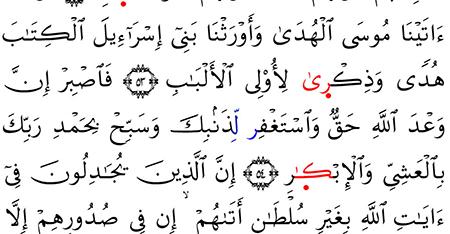 ءَاتَيْنَا مُوسَى الْهُدَىٰ وَأَوْرَثْنَا بَنِىٓ إِسْرَٰٓءِيلَ الْكِتَٰبَ
هُدًى وَذِكْرِىٰ لِأُوْلِى الْأَلْبَٰبِ ۝٥٣ فَاصْبِرْ إِنَّ
وَعْدَ اللَّهِ حَقٌّ وَاسْتَغْفِر لِّذَنۢبِكَ وَسَبِّحْ بِحَمْدِ رَبِّكَ
بِالْعَشِىِّ وَالْإِبْكَٰرِ ۝٥٤ إِنَّ الَّذِينَ يُجَٰدِلُونَ فِىٓ
ءَايَٰتِ اللَّهِ بِغَيْرِ سُلْطَٰنٍ أَتَىٰهُمْ ۙ إِن فِى صُدُورِهِمْ إِلَّا